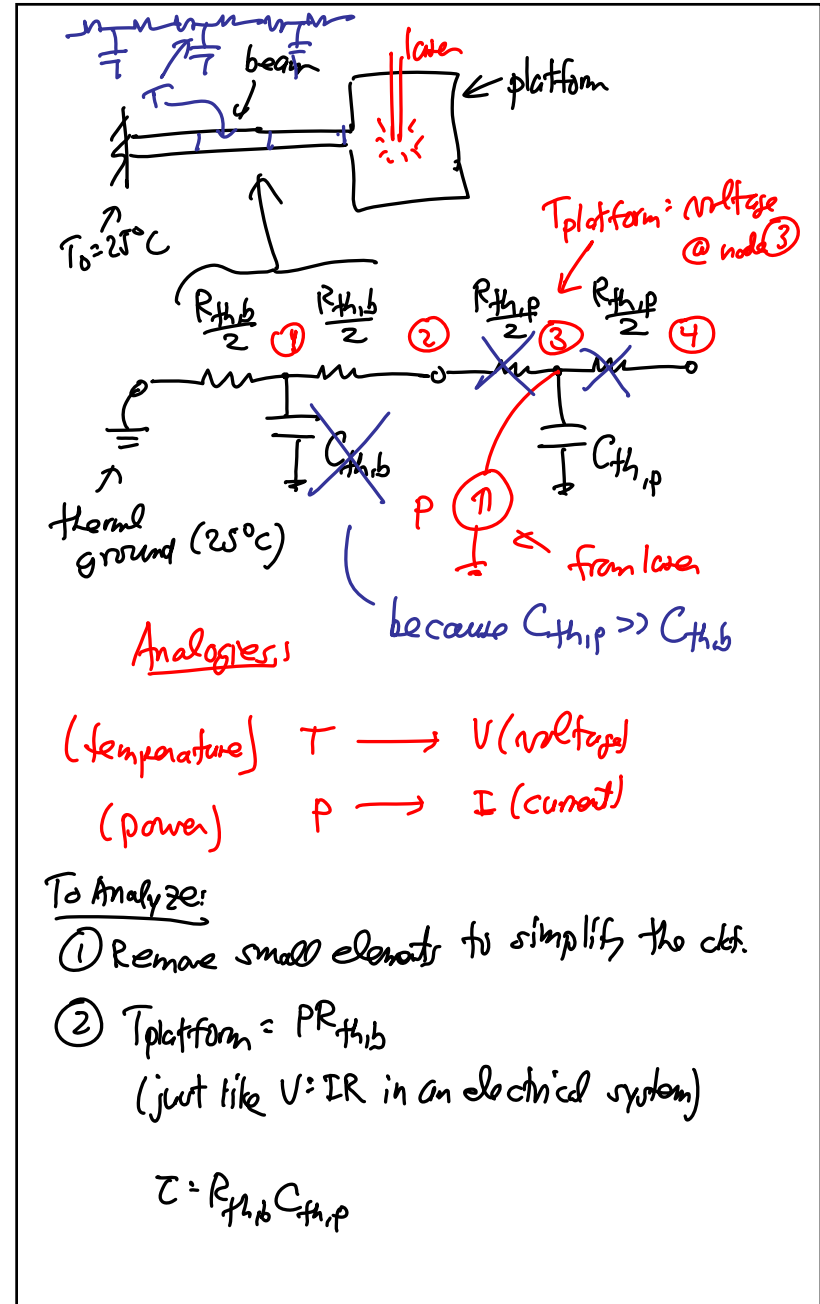 beam
laser
platform
T
T₀=25°C
Tplatform = voltage
@ node ③
R_th,b/2
R_th,b/2
R_th,p/2
R_th,p/2
①
②
③
④
C_th,b
C_th,p
thermal
ground (25°C)
P
from laser
because C_th,p >> C_th,b
Analogies:
(temperature) T → V (voltage)
(power) P → I (current)
To Analyze:
① Remove small elements to simplify the ckt.
② Tplatform = PR_th,b
(just like V=IR in an electrical system)
τ = R_th,b C_th,p